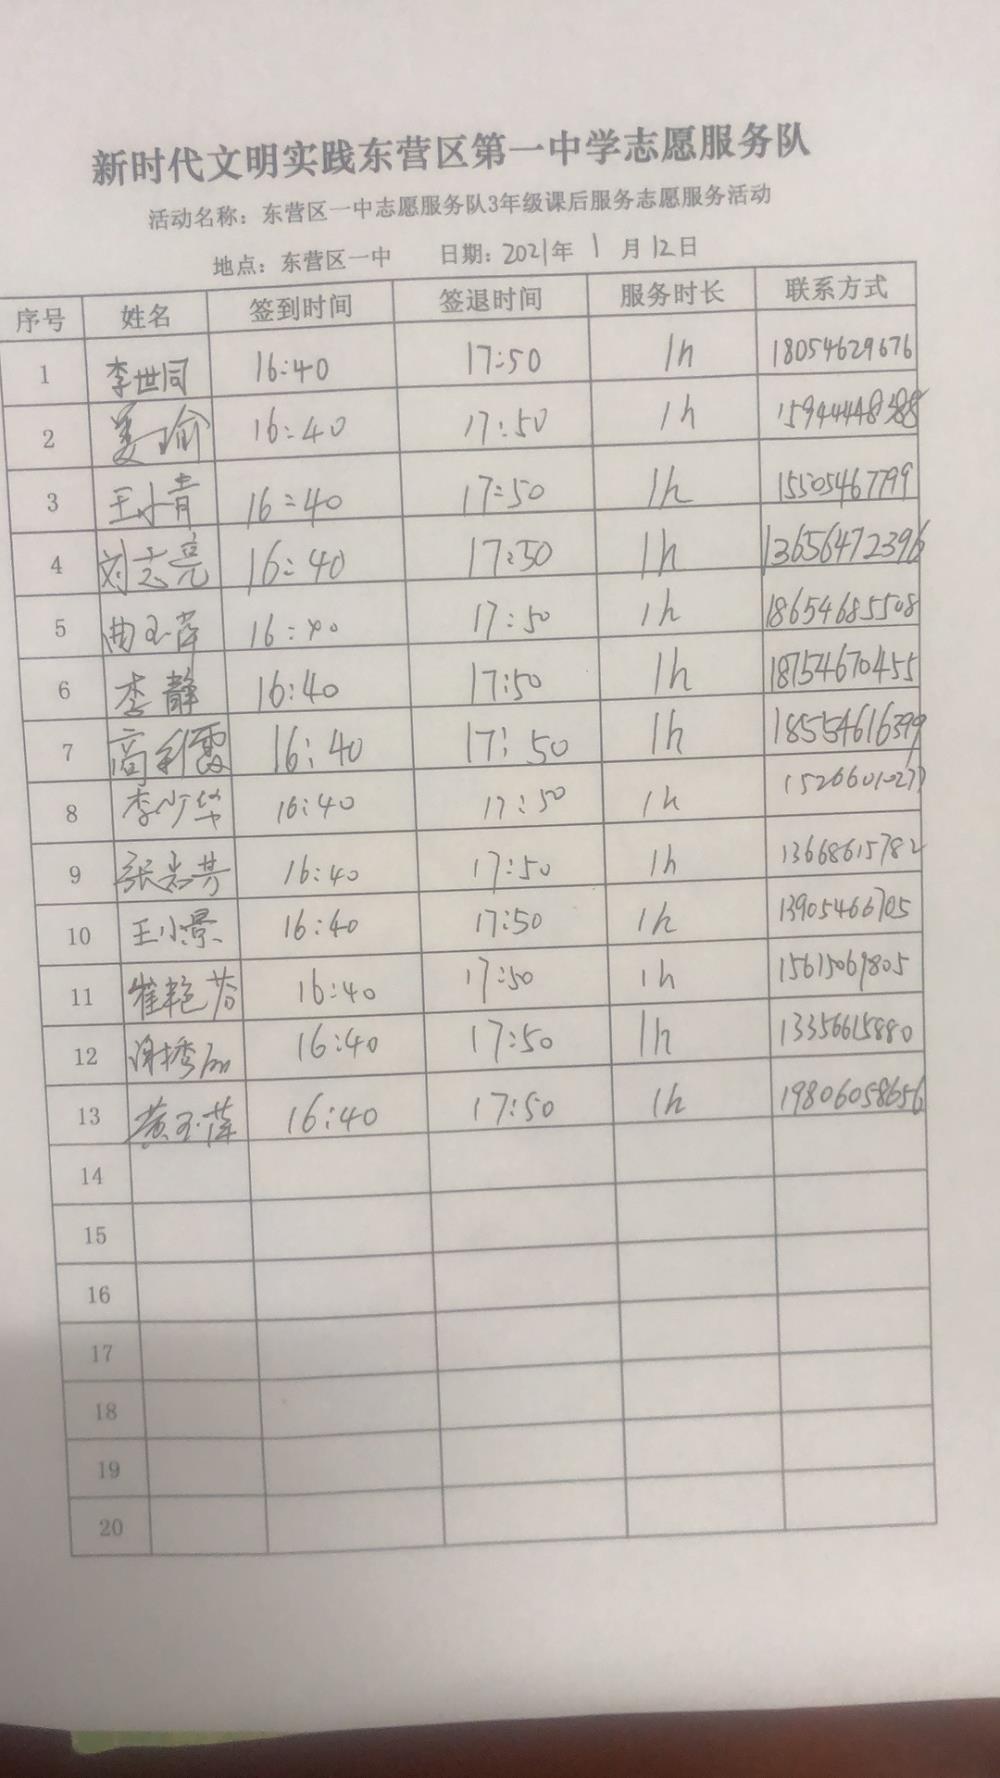 新时代文明实践东营区第一中学志愿服务队
活动名称：东营区一中志愿服务队3年级课后服务志愿服务活动
地点：东营区一中 日期：2021年 1 月 12日
序号 姓名 签到时间 签退时间 服务时长 联系方式
1 李世同 16:40 17:50 1h 18054629676
2 姜瑜 16:40 17:50 1h
3 王小青 16:40 17:50 1h 15505467799
4 刘志亮 16:40 17:50 1h 13656472396
5 曲玉萍 16:40 17:50 1h 18654685508
6 李静 16:40 17:50 1h 18754670455
7 高利霞 16:40 17:50 1h 18554616399
8 李少华 16:40 17:50 1h
9 16:40 17:50 1h 13668615782
10 王小景 16:40 17:50 1h 13905466705
11 崔艳芬 16:40 17:50 1h 15615069805
12 16:40 17:50 1h 13356615880
13 黄玉萍 16:40 17:50 1h 19806058656
14
15
16
17
18
19
20